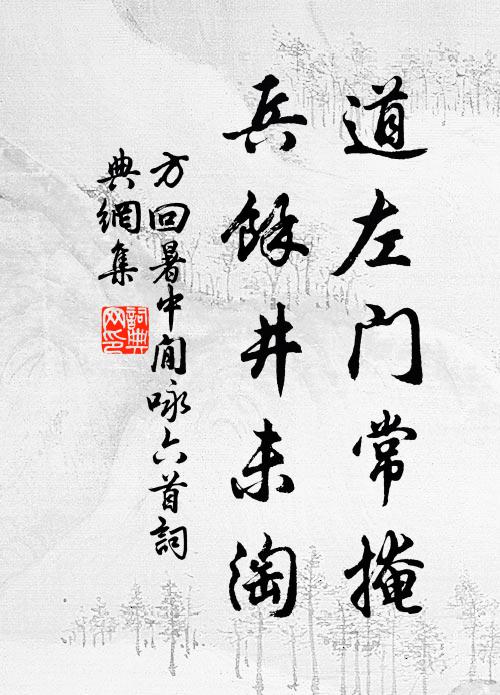 道左門常掩
兵餘井未淘
方回暑中閒咏六首詞
典網集
詞典
网印